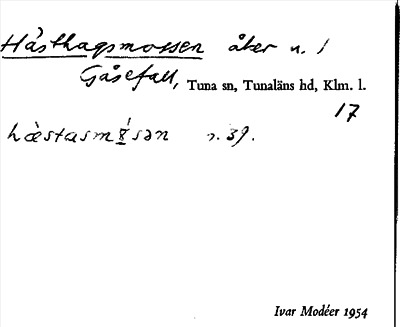 Hästhagsmossen åker n. 1
Gåsefall, Tuna sn, Tunaläns hd, Klm. l.
17
s. 39.
Ivar Modéer 1954